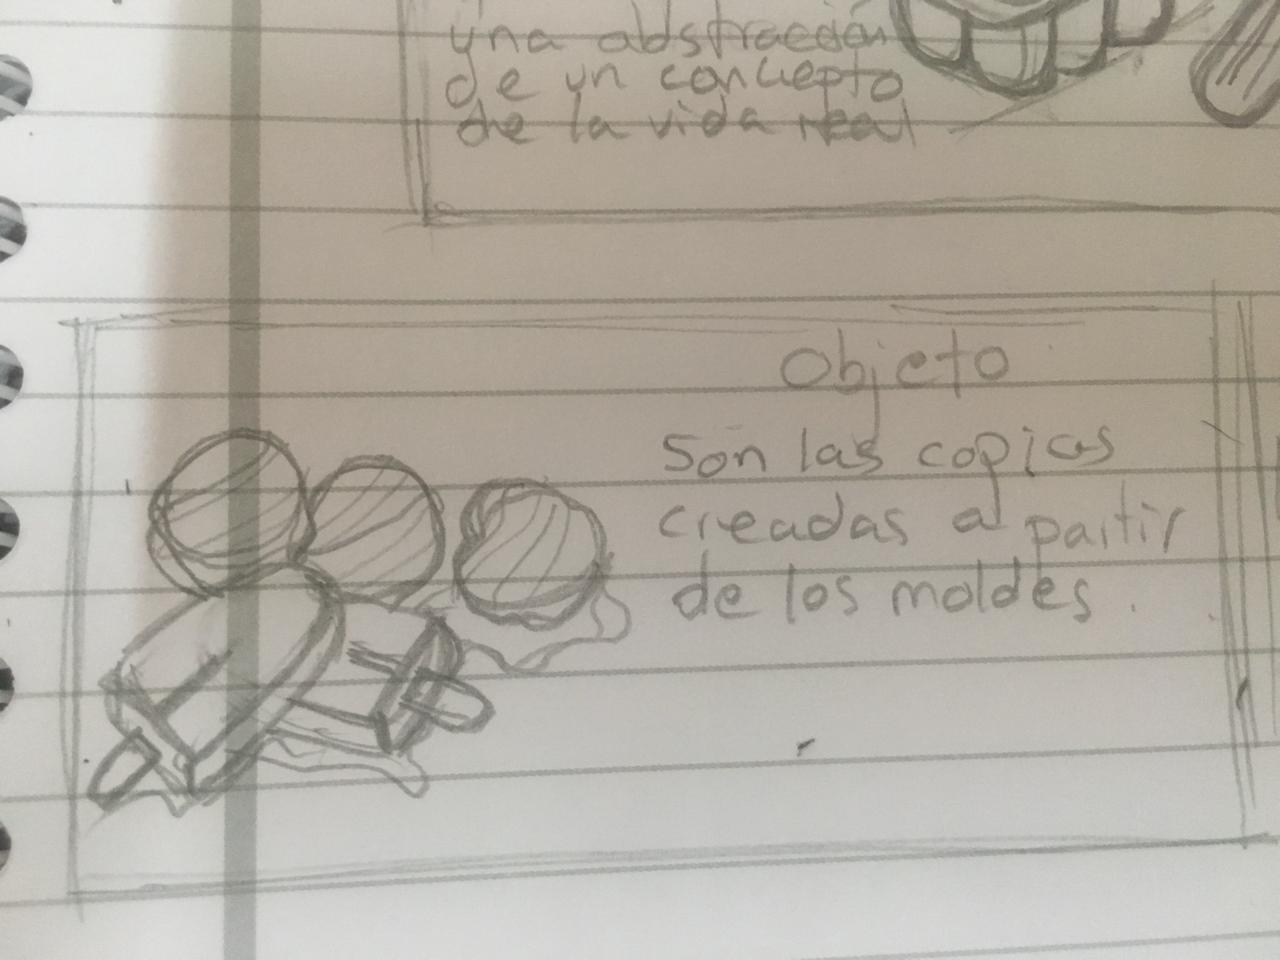 una abstracción
de un concepto
de la vida real
Objeto
Son las copias
creadas a partir
de los moldes.